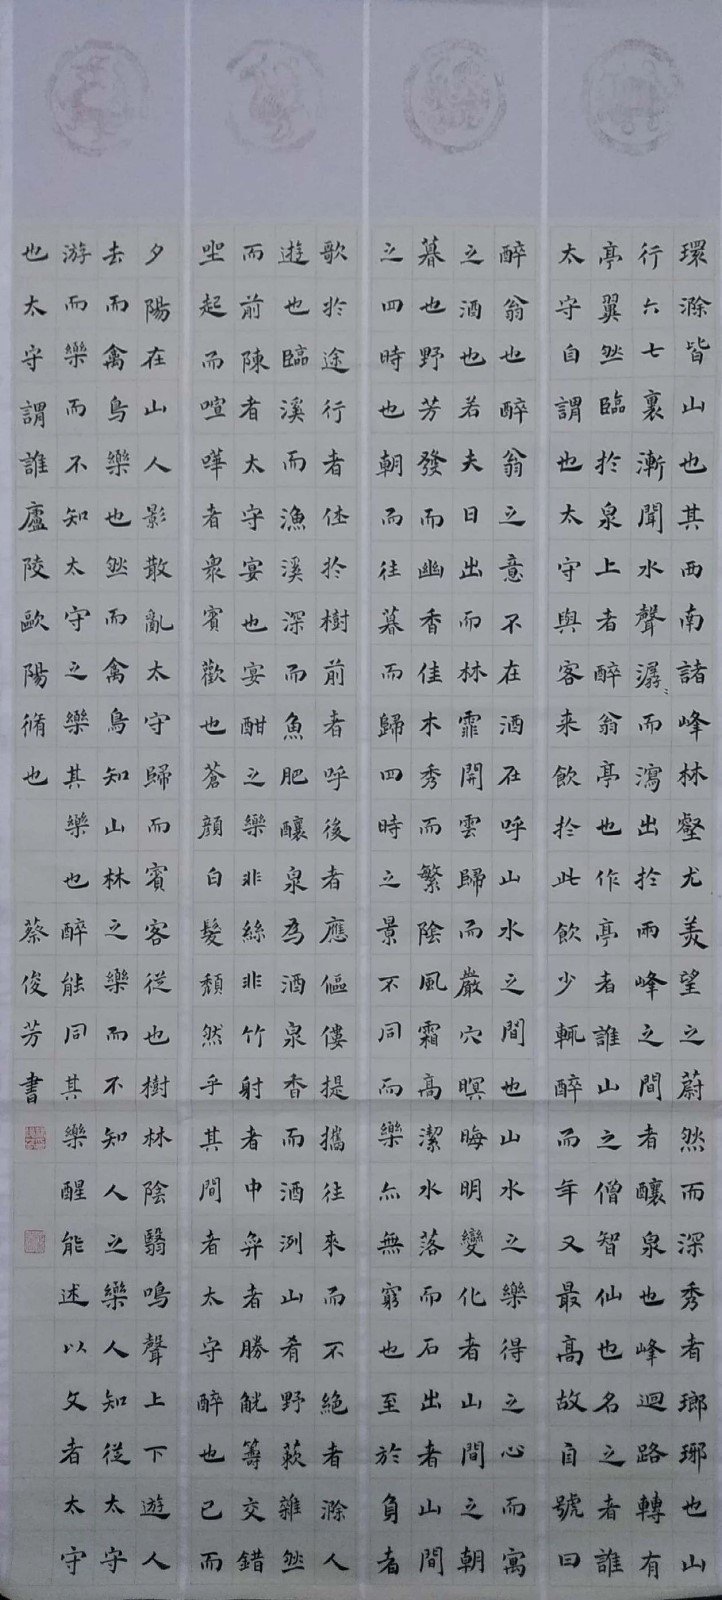 環滁皆山也其西南諸峰林壑尤美望之蔚然而深秀者瑯琊也山
行六七裏漸聞水聲潺〻而瀉出於兩峰之間者釀泉也峰迴路轉有
亭翼然臨於泉上者醉翁亭也作亭者誰山之僧智仙也名之者誰
太守自謂也太守與客来飲於此飲少輒醉而年又最高故自號曰
醉翁也醉翁之意不在酒在呼山水之間也山水之樂得之心而寓
之酒也若夫日出而林霏開雲歸而巖穴暝晦明變化者山間之朝
暮也野芳發而幽香佳木秀而繁陰風霜高潔水落而石出者山間
之四時也朝而往暮而歸四時之景不同而樂亦無窮也至於負者
歌於途行者休於樹前者呼後者應傴僂提攜往來而不絶者滁人
遊也臨溪而漁溪深而魚肥釀泉為酒泉香而酒洌山肴野蔌雜然
而前陳者太守宴也宴酣之樂非絲非竹射者中弈者勝觥籌交錯
坐起而喧嘩者衆賓歡也蒼顔白髮頹然乎其間者太守醉也已而
夕陽在山人影散亂太守歸而賓客從也樹林陰翳鳴聲上下遊人
去而禽鳥樂也然而禽鳥知山林之樂而不知人之樂人知從太守
游而樂而不知太守之樂其樂也醉能同其樂醒能述以文者太守
也太守謂誰廬陵歐陽脩也 蔡俊芳書